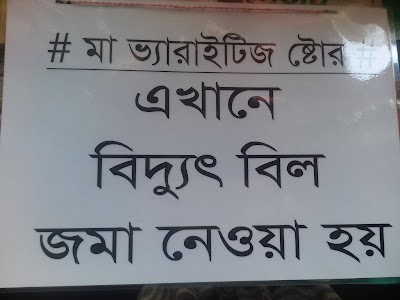 # মা ভ্যারাইটিজ ষ্টোর #
এখানে
বিদ্যুৎ বিল
জমা নেওয়া হয়